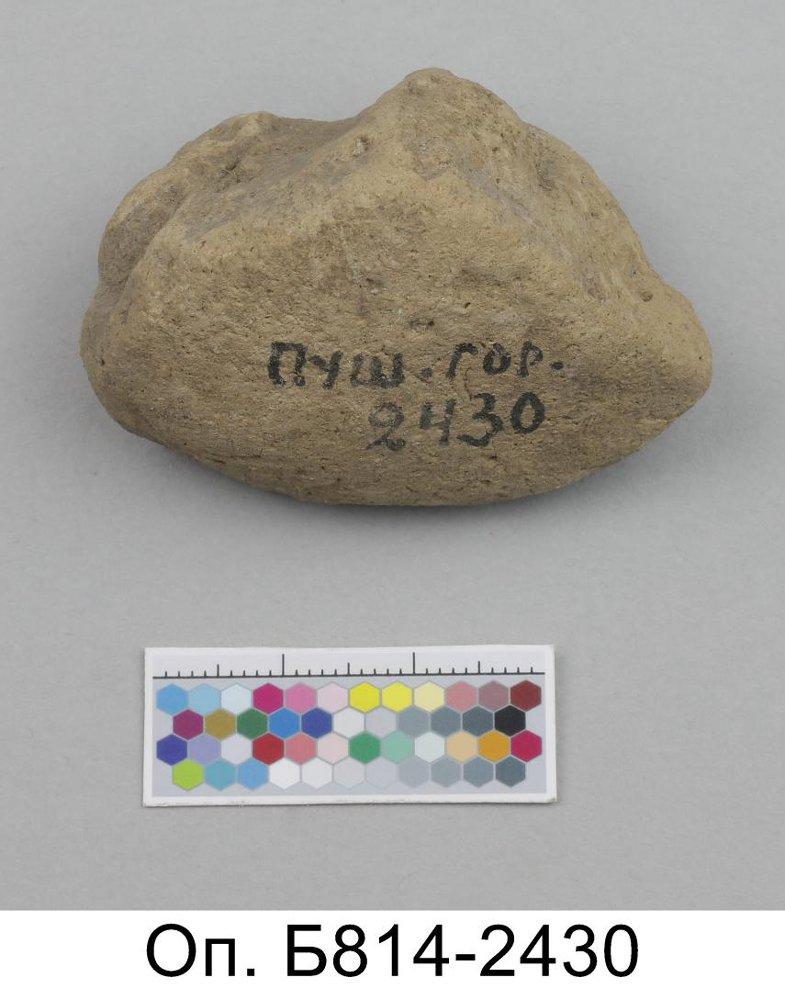 Пуш. гор.
2430
Оп. Б814-2430